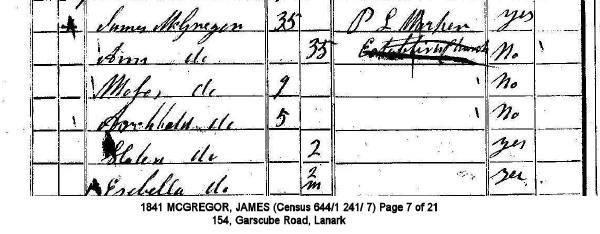 James McGregor 35 P L Worker yes
Ann do 35 No
Moses do 9 No
Archibald do 5 No
Helen do 2 yes
Esebella do 2 m yes
1841 MCGREGOR, JAMES (Census 644/1 241/ 7) Page 7 of 21
154, Garscube Road, Lanark